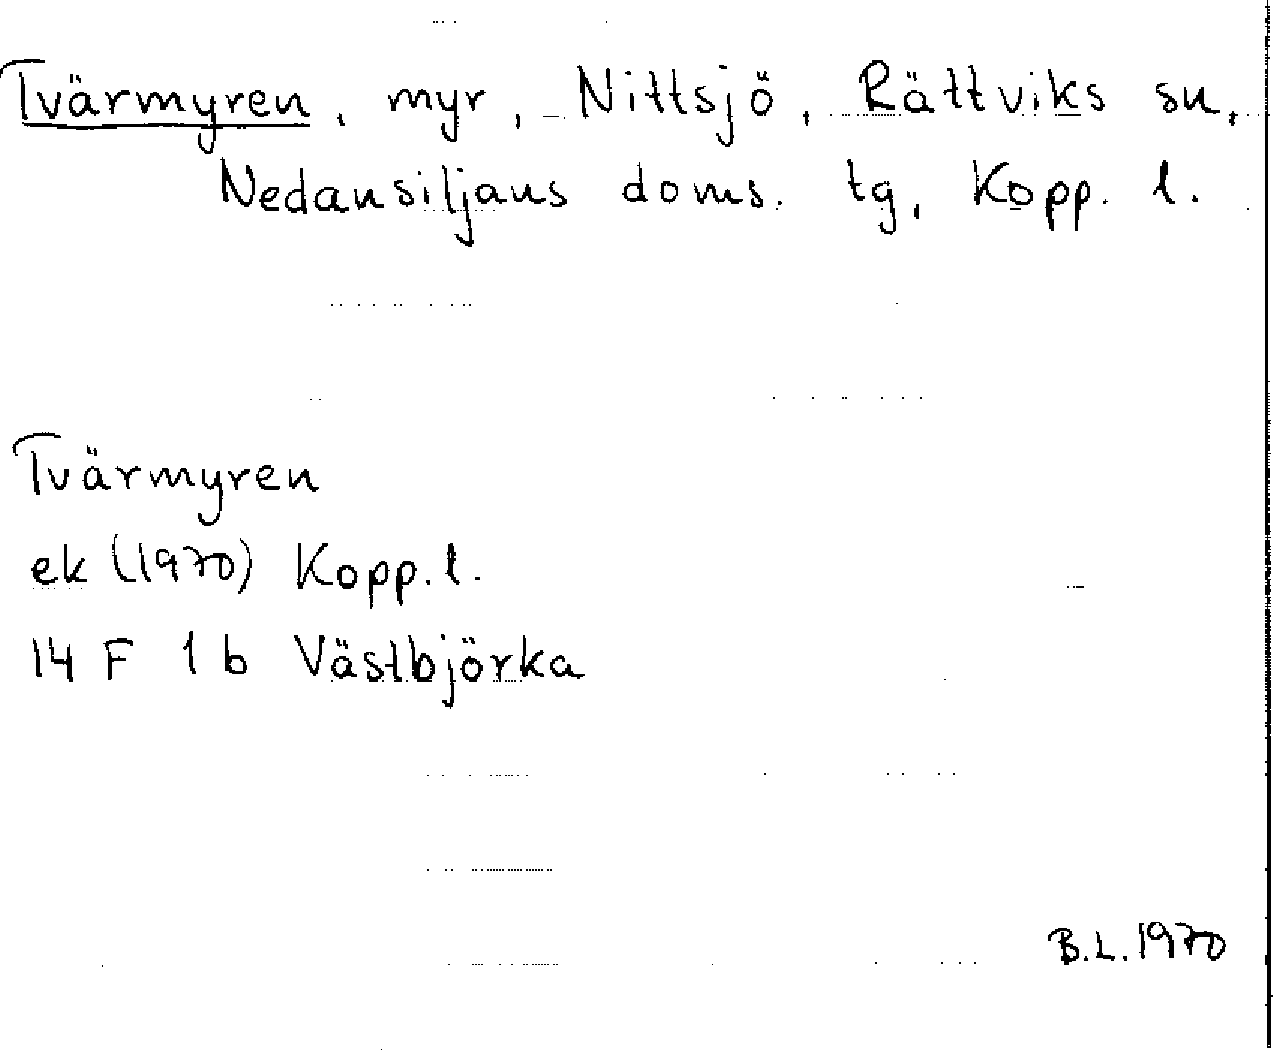 Tvärmyren, myr, Nittsjö, Rättviks sn,
Nedansiljans doms. tg, Kopp. l.
Tvärmyren
ek (1970) Kopp. l.
14 F 1 b Västbjörka
B.L. 1970